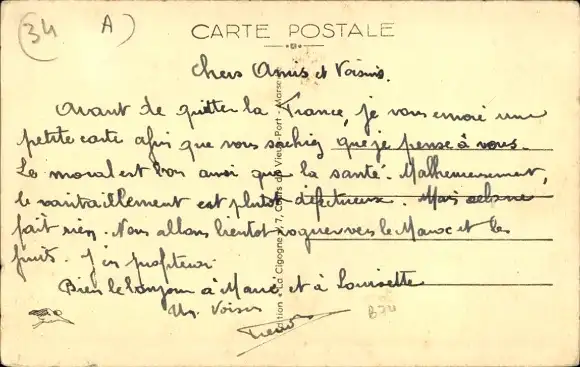 (34 A)
CARTE POSTALE
Chers Amis et Voisins.
Avant de quitter la France, je vous envoie une
petite carte afin que vous sachiez que je pense à vous.
Le moral est bon ainsi que la santé. Malheureusement,
le ravitaillement est plutôt défectueux. Mais cela ne
fait rien. Nous allons bientôt voguer vers le Maroc et les
fruits. J'en profiterai
Bien le bonjour à Marie et à Louisette
Un Voisin
B74
Edition "La Cigogne" 7, Cours du Vieux-Port - Marseille